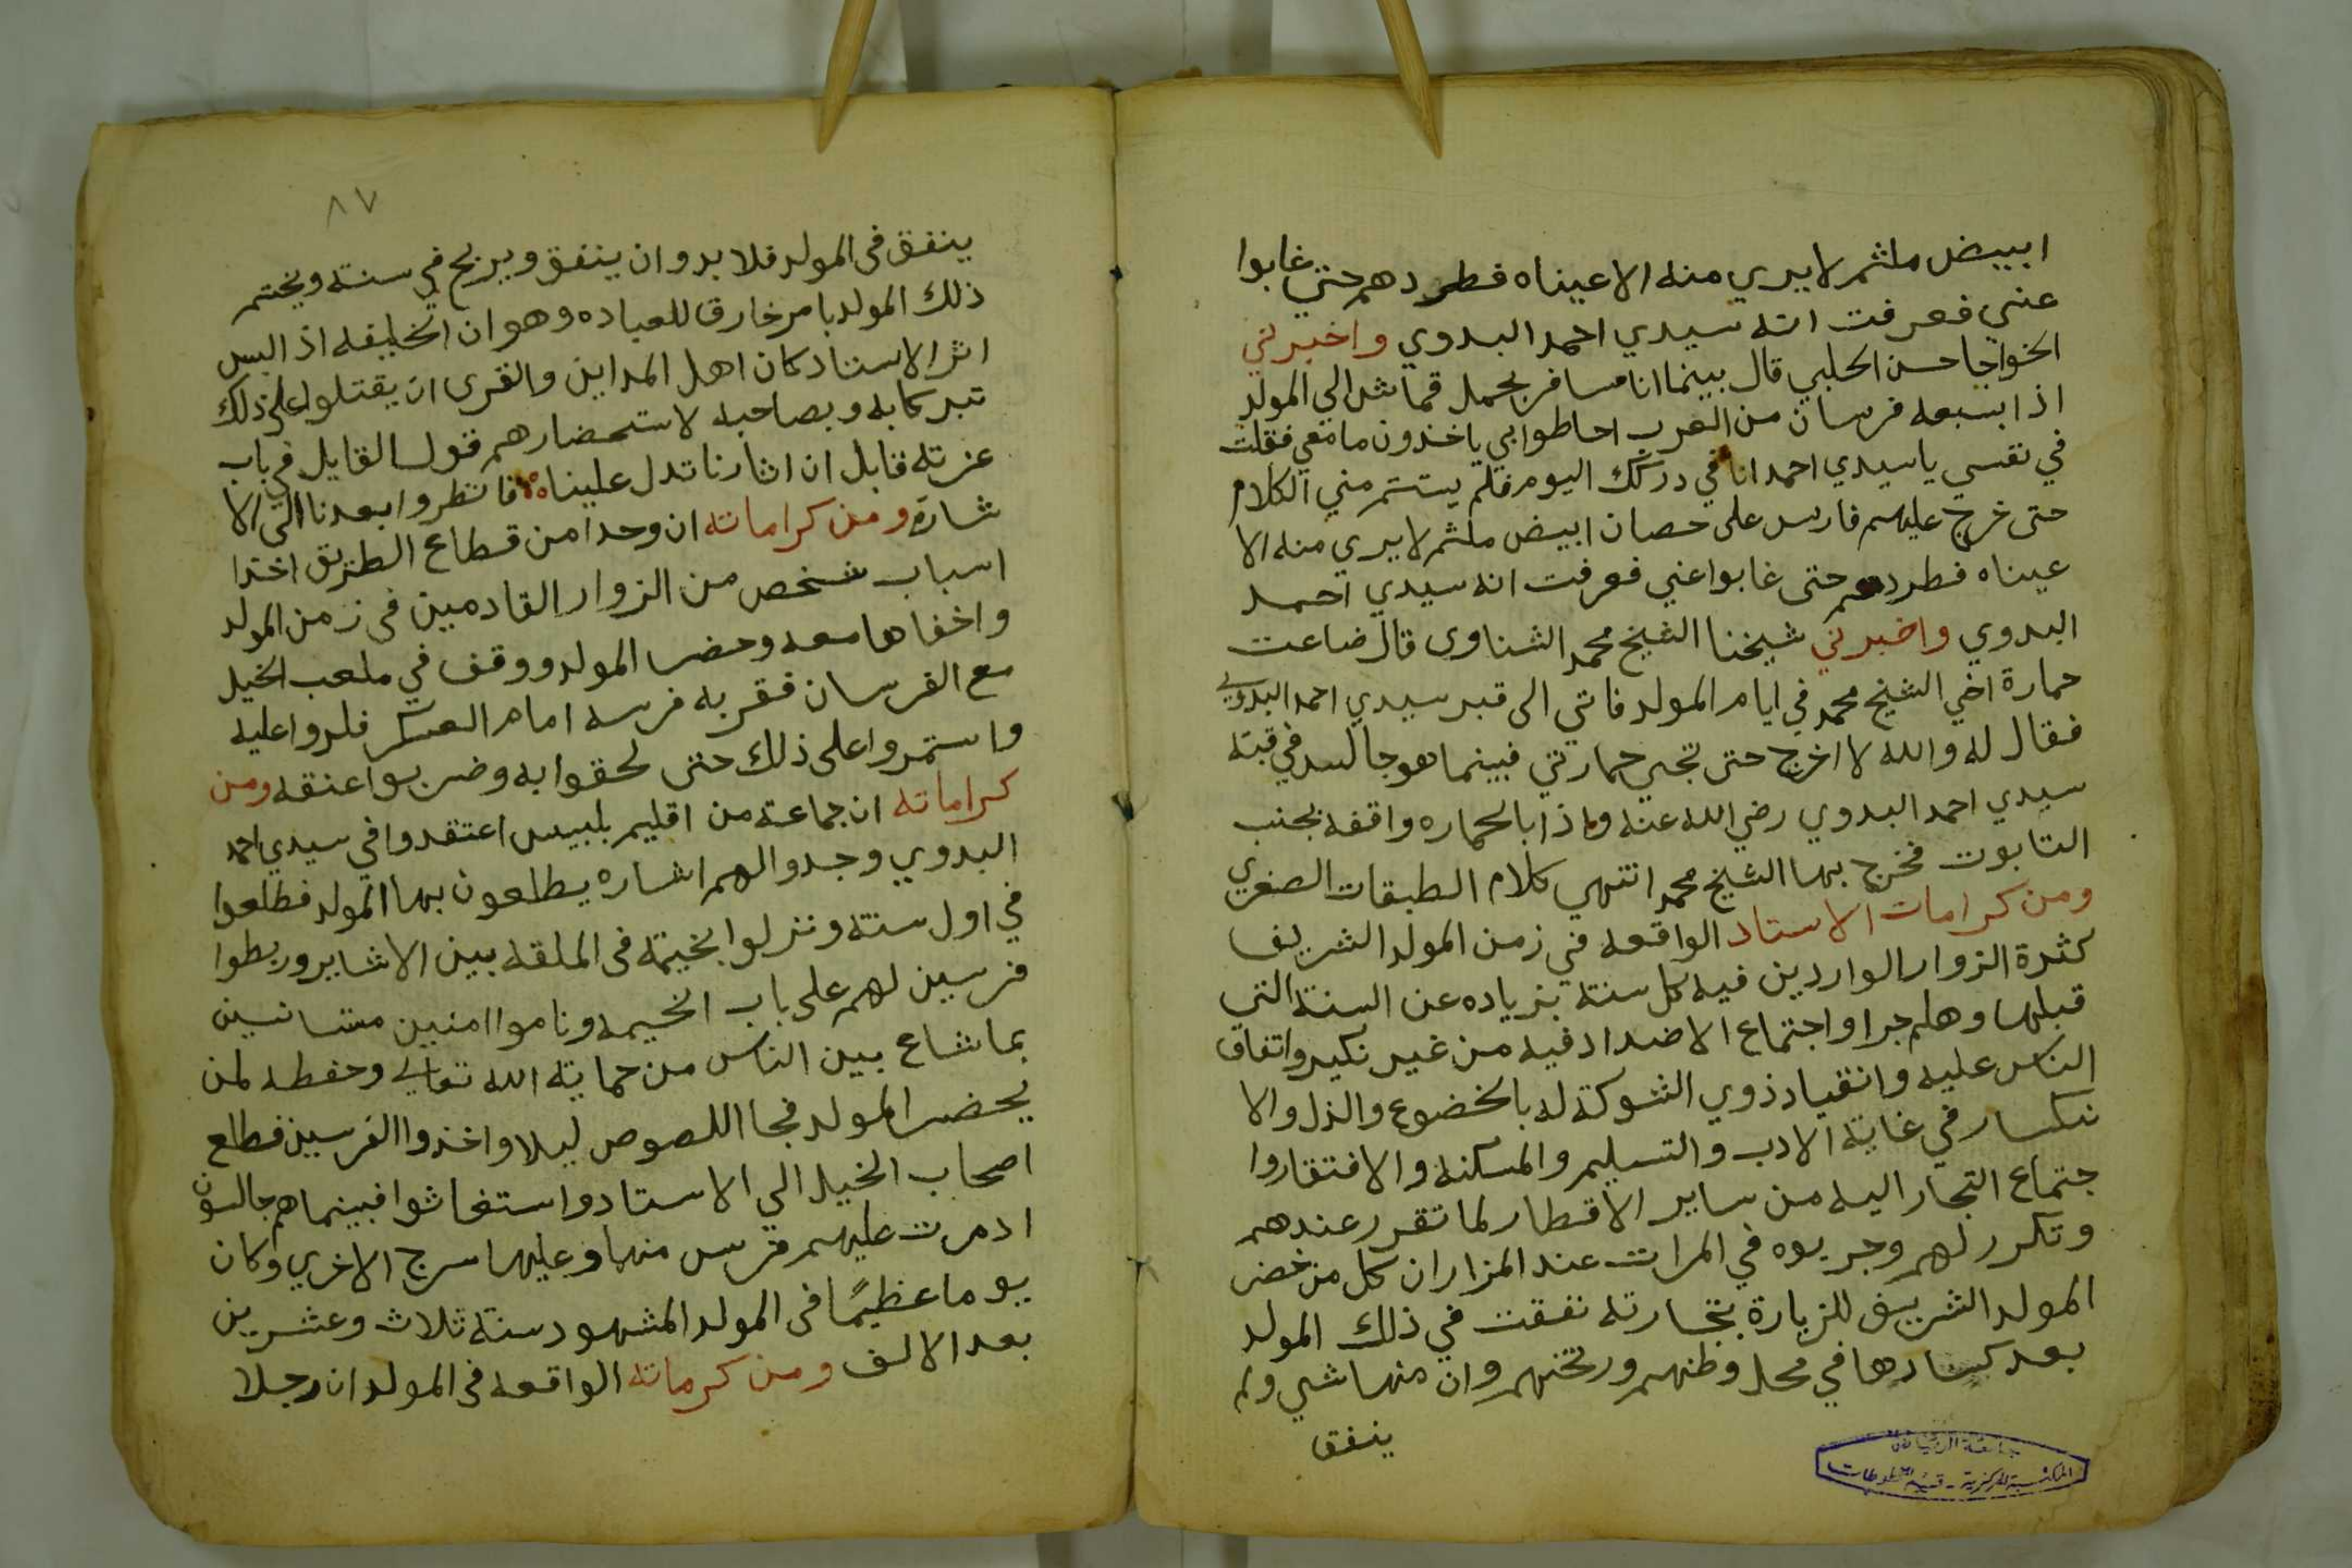 ابيض ملثم لا يري منه الا عيناه فطردهم حتي غابوا
عني فعرفت انه سيدي احمد البدوي واخبرني
الخواجا حسن الحلبي قال بينما انا مسافر بحمل قماش الي المولد
اذا بسبعه فرسان من العرب احاطوا بي ياخذون ما معي فقلت
في نفسي يا سيدي احمد انا في دركك اليوم فلم يستتم مني الكلام
حتى خرج عليهم فارس على حصان ابيض ملثم لا يري منه الا
عيناه فطردهم حتى غابوا عني فعرفت انه سيدي احمد
البدوي واخبرني شيخنا الشيخ محمد الشناوى قال ضاعت
حمارة اخي الشيخ محمد في ايام المولد فاتي الى قبر سيدي احمد البدوي
فقال له والله لا اخرج حتى تجي حمارتي فبينما هو جالس في قبة
سيدي احمد البدوي رضي الله عنه واذا بالحماره واقفه بجنب
التابوت فخرج بها الشيخ محمد انتهي كلام الطبقات الصغري
ومن كرامات الاستاد الواقعه في زمن المولد الشريف
كثرة الزوار الواردين فيه كل سنة بزياده عن السنة التي
قبلها وهلم جرا واجتماع الاضداد فيه من غير نكير واتفاق
الناس عليه وانقياد ذوي الشوكة له بالخضوع والذل والا
نكسار في غاية الادب والتسليم والمسكنه والافتقار وا
جتماع التجار اليه من ساير الاقطار لما تقرر عندهم
وتكرر لهم وجربوه في المرات عند المزار ان كل من حضر
المولد الشريف للزيارة بتجارته نفقت في ذلك المولد
بعد كسادها في محل وطنهم وان منها شي ولم
ينفق
جامعة الرياض
المكتبة المركزية - قسم المخطوطات
٨٧
ينفق فى المولد فلا بد وان ينفق ويربح في سنته ويختم
ذلك المولد بامر خارق للعباده وهو ان الخليفه اذا لبس
اثر الاستاد كان اهل المداين والقرى ان يقتلوا على ذلك
تبركا به وبصاحبه لاستحضارهم قول القايل في باب
عزته قايل ان اثارنا تدل علينا فانظروا بعدنا الى الا
شاره ومن كراماته ان وحدا من قطاع الطريق اخذا
اسباب شخص من الزوار القادمين فى زمن المولد
واخفاها معه وحضر المولد ووقف في ملعب الخيل
مع الفرسان فقر به فرسه امام العسكر فلروا عليه
واستمروا على ذلك حتى لحقوا به وضربوا عنقه ومن
كراماته ان جماعة من اقليم بلبيس اعتقدوا في سيدي احمد
البدوي وجدوا لهم اشاره يطلعون بها المولد فطلعوا
في اول سنته ونزلوا بخيمة فى الملقه بين الاشاير وربطوا
فرسين لهم على باب الخيمه وناموا امنين مستانسين
بما شاع بين الناس من حماية الله تعالي وحفظه لمن
يحضر المولد فجا اللصوص ليلا واخذوا الفرسين فطلع
اصحاب الخيل الي الاستاد واستغاثوا فبينما هم جالسون
اد مرت عليهم فرس منها وعليها سرج الاخري وكان
يوما عظيمًا فى المولد المشهود سنة ثلاث وعشرين
بعد الالف ومن كرماته الواقعه فى المولد ان رجلا